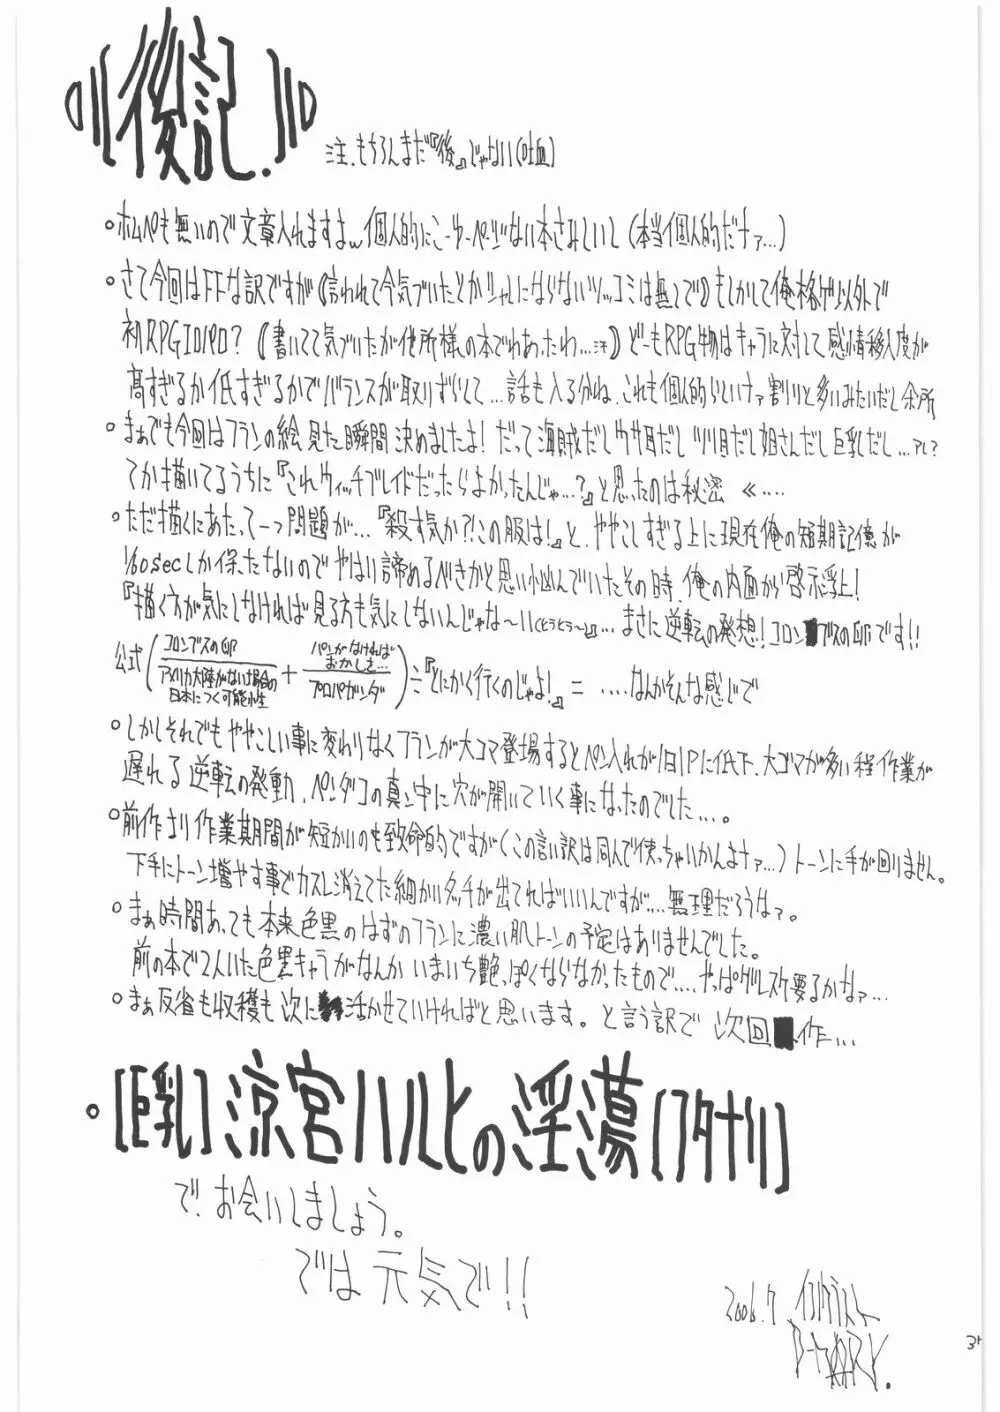 後記.
注.もちろんまだ『後』じゃない(吐血)
。ホムペも無いので文章入れますよ。個人的にこーゆーページない本さみしいし(本当個人的だナァ…)
。さて今回はFFな訳ですが《言われて今気づいたとかシャレにならないツッコミは無しで》もしかして俺、格ゲ以外で
初RPGエロパロ?《書いてて気づいたが他所様の本でわあったわ…汗》どーもRPG物はキャラに対して感情移入度が
高すぎるか低すぎるかでバランスが取りずらくて…話も入る分ね、これも個人的らしいナァ割りと多いみたいだし余所
。まぁでも今回はフランの絵見た瞬間決めましたよ!だって海賊だしウサ耳だしツリ目だし姐さんだし巨乳だし…アレ?
てか描いてるうちに『これウィッチブレイドだったらよかったんじゃ…?』と思ったのは秘密《….
。ただ描くにあたって一つ問題が…『殺す気か?!この服は!』と、ややこしすぎる上に現在俺の短期記憶が
1/60secしか保たないのでやはり諦めるべきかと思い悩んでいたその時、俺の内面から啓示浮上!
『描く方が気にしなければ見る方も気にしないんじゃな〜い(とうとう〜)』…まさに逆転の発想!コロンブスの卵です!!
公式(コロンブスの卵/アメリカ大陸がない場合の日本につく可能性+パンがなければおかしを…/プロパガンダ)÷『とにかく行くのじゃよ!』=….なんかそんな感じで
。しかしそれでもややこしい事に変わりなくフランが大コマ登場するとペン入れが1日1Pに低下、大ゴマが多い程作業が
遅れる逆転の発動、ペンダコの真ン中に穴が開いていく事になったのでした…。
。前作より作業期間が短かいのも致命的ですが(この言い訳は同人で使っちゃいかんよナァ…)トーンに手が回りません。
下手にトーン増やす事でカスレ消えてた細かいタッチが出てればいいんですが….無理だろうなァ。
。まぁ時間あっても本来色黒のはずのフランに濃い肌トーンの予定はありませんでした。
前の本で2人いた色黒キャラがなんかいまいち艶っぽくならなかったもので….やっぱグレスケ要るかなァ…
。まぁ反省も収穫も次に活かせていければと思います。と言う訳で次回作…
。[巨乳]涼宮ハルヒの淫蕩[フタナリ]
で、お会いしましょう。
では元気で!!
2006.7